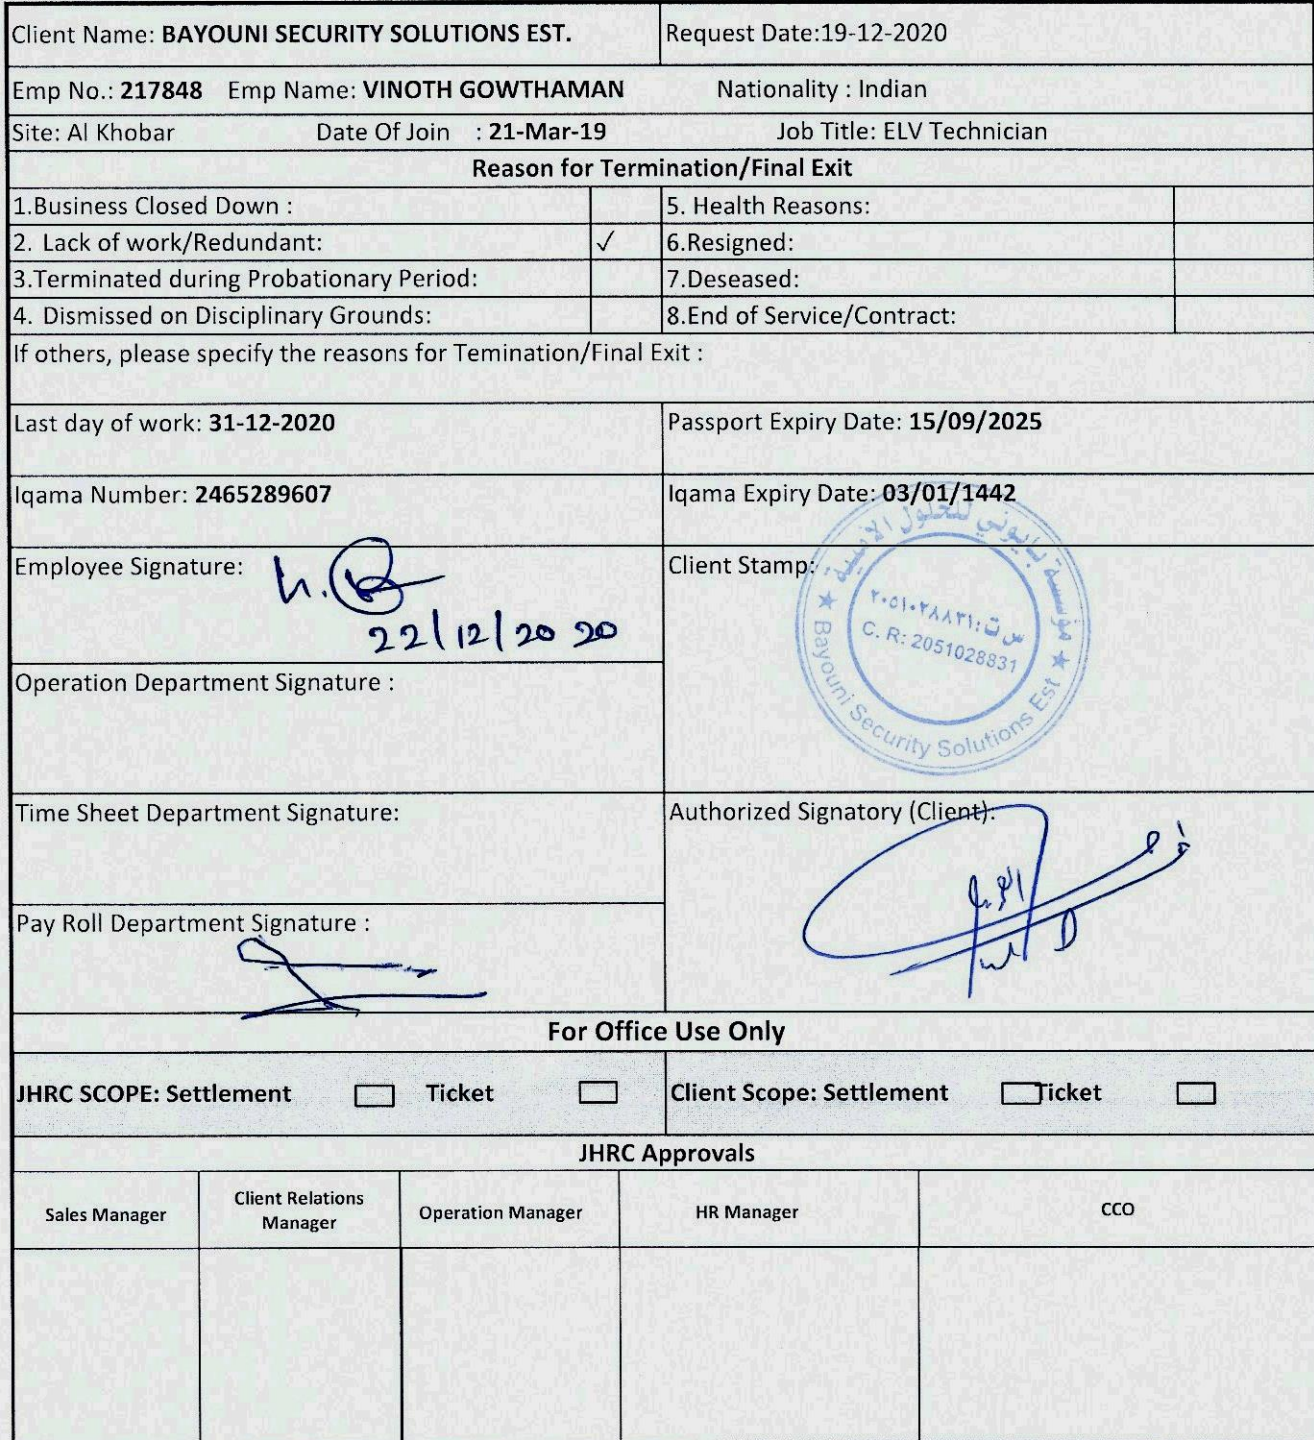 Client Name: BAYOUNI SECURITY SOLUTIONS EST. Request Date:19-12-2020
Emp No.: 217848 Emp Name: VINOTH GOWTHAMAN Nationality : Indian
Site: Al Khobar Date Of Join : 21-Mar-19 Job Title: ELV Technician
Reason for Termination/Final Exit
1.Business Closed Down : 5. Health Reasons:
2. Lack of work/Redundant: ✓ 6.Resigned:
3.Terminated during Probationary Period: 7.Deseased:
4. Dismissed on Disciplinary Grounds: 8.End of Service/Contract:
If others, please specify the reasons for Temination/Final Exit :
Last day of work: 31-12-2020 Passport Expiry Date: 15/09/2025
Iqama Number: 2465289607 Iqama Expiry Date: 03/01/1442
Employee Signature: Client Stamp:
22/12/2020
مؤسسة بايوني للحلول الأمنية
س ت: ٢٠٥١٠٢٨٨٣١
C. R: 2051028831
Bayouni Security Solutions Est
Operation Department Signature :
Time Sheet Department Signature: Authorized Signatory (Client):
Pay Roll Department Signature :
For Office Use Only
JHRC SCOPE: Settlement Ticket Client Scope: Settlement Ticket
JHRC Approvals
Sales Manager Client Relations Manager Operation Manager HR Manager CCO